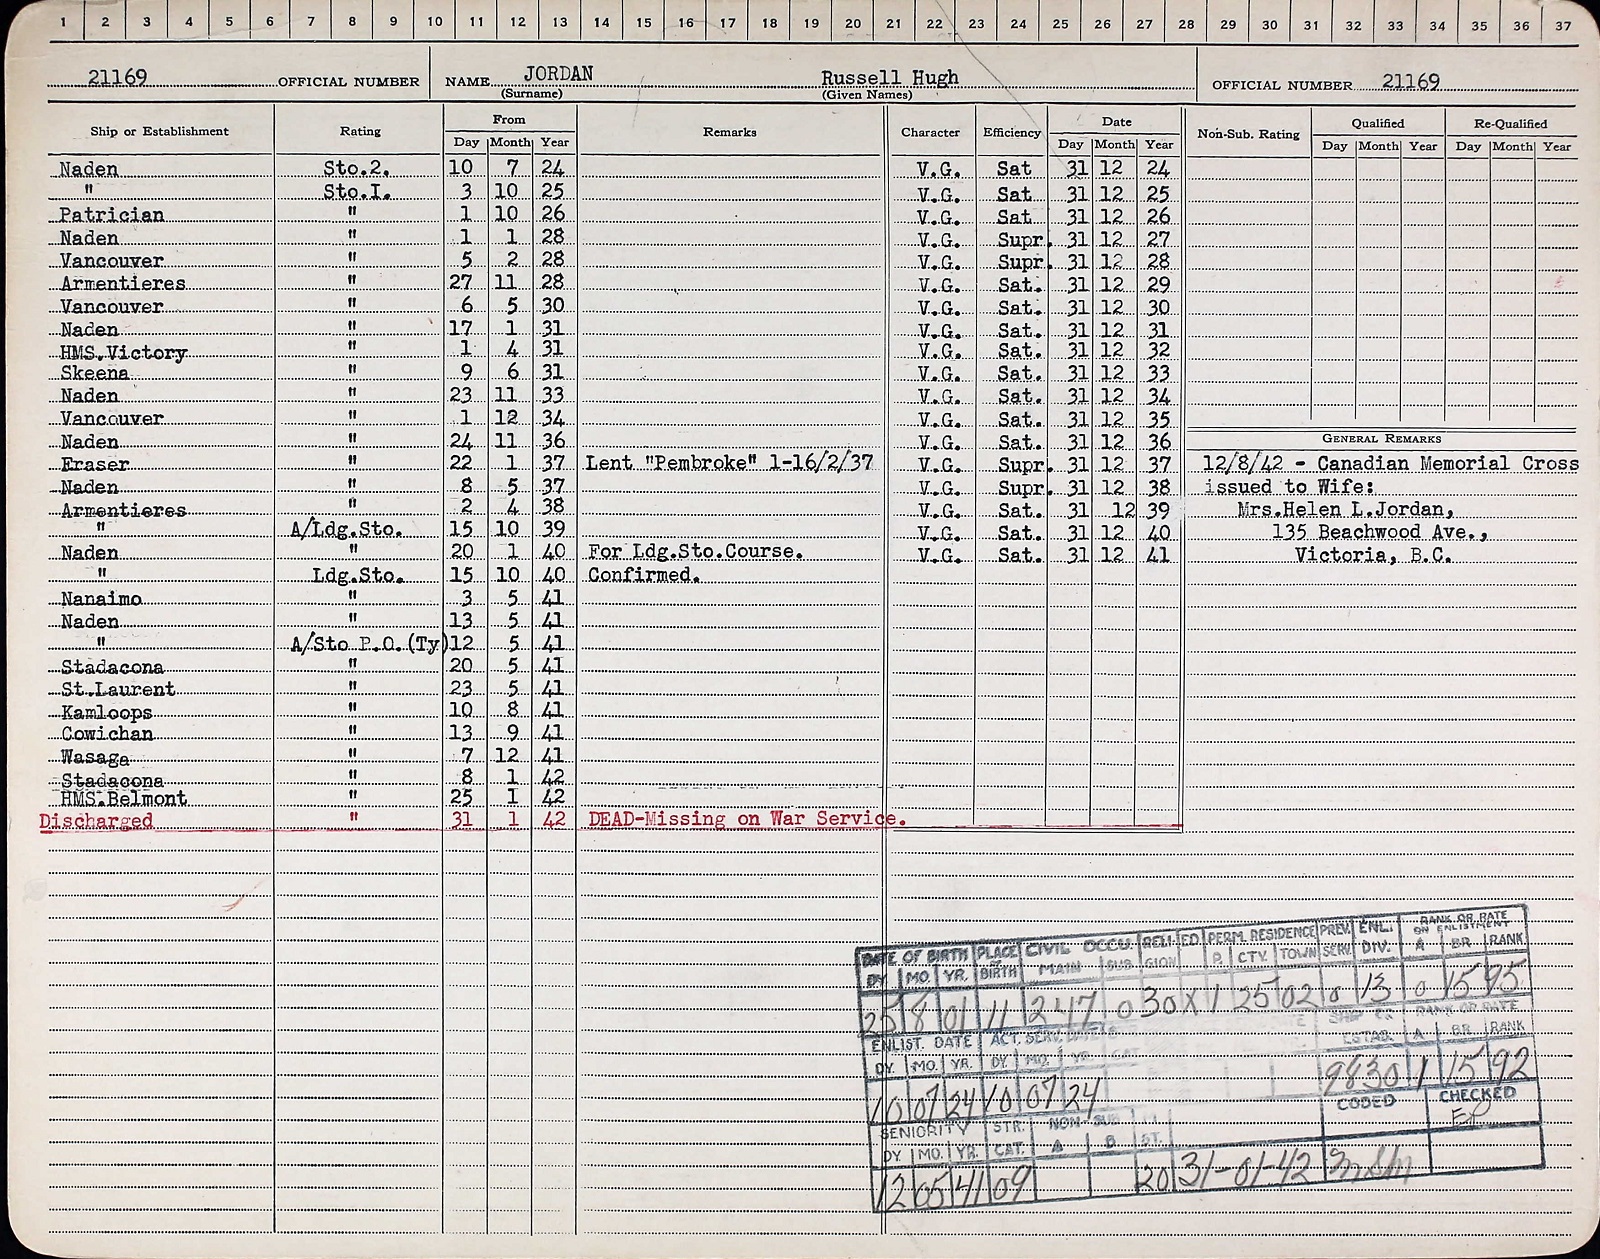 1 2 3 4 5 6 7 8 9 10 11 12 13 14 15 16 17 18 19 20 21 22 23 24 25 26 27 28 29 30 31 32 33 34 35 36 37
21169 OFFICIAL NUMBER NAME JORDAN Russell Hugh OFFICIAL NUMBER 21169
(Surname) (Given Names)
Ship or Establishment Rating From Remarks Character Efficiency Date Non-Sub. Rating Qualified Re-Qualified
Day Month Year Day Month Year Day Month Year Day Month Year
Naden Sto.2. 10 7 24 V.G. Sat 31 12 24
" Sto.I. 3 10 25 V.G. Sat 31 12 25
Patrician " 1 10 26 V.G. Sat 31 12 26
Naden " 1 1 28 V.G. Supr. 31 12 27
Vancouver " 5 2 28 V.G. Supr. 31 12 28
Armentieres " 27 11 28 V.G. Sat. 31 12 29
Vancouver " 6 5 30 V.G. Sat. 31 12 30
Naden " 17 1 31 V.G. Sat. 31 12 31
HMS.Victory " 1 4 31 V.G. Sat. 31 12 32
Skeena " 9 6 31 V.G. Sat. 31 12 33
Naden " 23 11 33 V.G. Sat. 31 12 34
Vancouver " 1 12 34 V.G. Sat. 31 12 35
Naden " 24 11 36 V.G. Sat. 31 12 36 GENERAL REMARKS
Fraser " 22 1 37 Lent "Pembroke" 1-16/2/37 V.G. Supr. 31 12 37 12/8/42 - Canadian Memorial Cross
Naden " 8 5 37 V.G. Supr. 31 12 38 issued to Wife:
Armentieres " 2 4 38 V.G. Sat. 31 12 39 Mrs.Helen L.Jordan,
" A/Ldg.Sto. 15 10 39 V.G. Sat. 31 12 40 135 Beachwood Ave.,
Naden " 20 1 40 For Ldg.Sto.Course. V.G. Sat. 31 12 41 Victoria, B.C.
" Ldg.Sto. 15 10 40 Confirmed.
Nanaimo " 3 5 41
Naden " 13 5 41
" A/Sto P.O.(Ty) 12 5 41
Stadacona " 20 5 41
St.Laurent " 23 5 41
Kamloops " 10 8 41
Cowichan " 13 9 41
Wasaga " 7 12 41
Stadacona " 8 1 42
HMS.Belmont " 25 1 42
Discharged " 31 1 42 DEAD-Missing on War Service.
DATE OF BIRTH PLACE OF BIRTH CIVIL OCCU. RELIGION ED PERM. RESIDENCE PREV. SERV. ENL. DIV. RANK OR RATE ON ENLISTMENT
DY. MO. YR. MAIN SUB. P. CTY. TOWN A BR RANK
25 8 01 11 247 0 30 X 1 25 02 0 13 0 15 95
ENLIST. DATE ACT. SERV. DATE SHIP OR ESTAB. RANK OR RATE
DY. MO. YR. DY. MO. YR. CAT A BR RANK
10 07 24 10 07 24 9830 1 15 92
SENIORITY STR. CAT. NON-SUB ST. CODED CHECKED
DY. MO. YR. A B
12 05 41 09 20 31-01-42